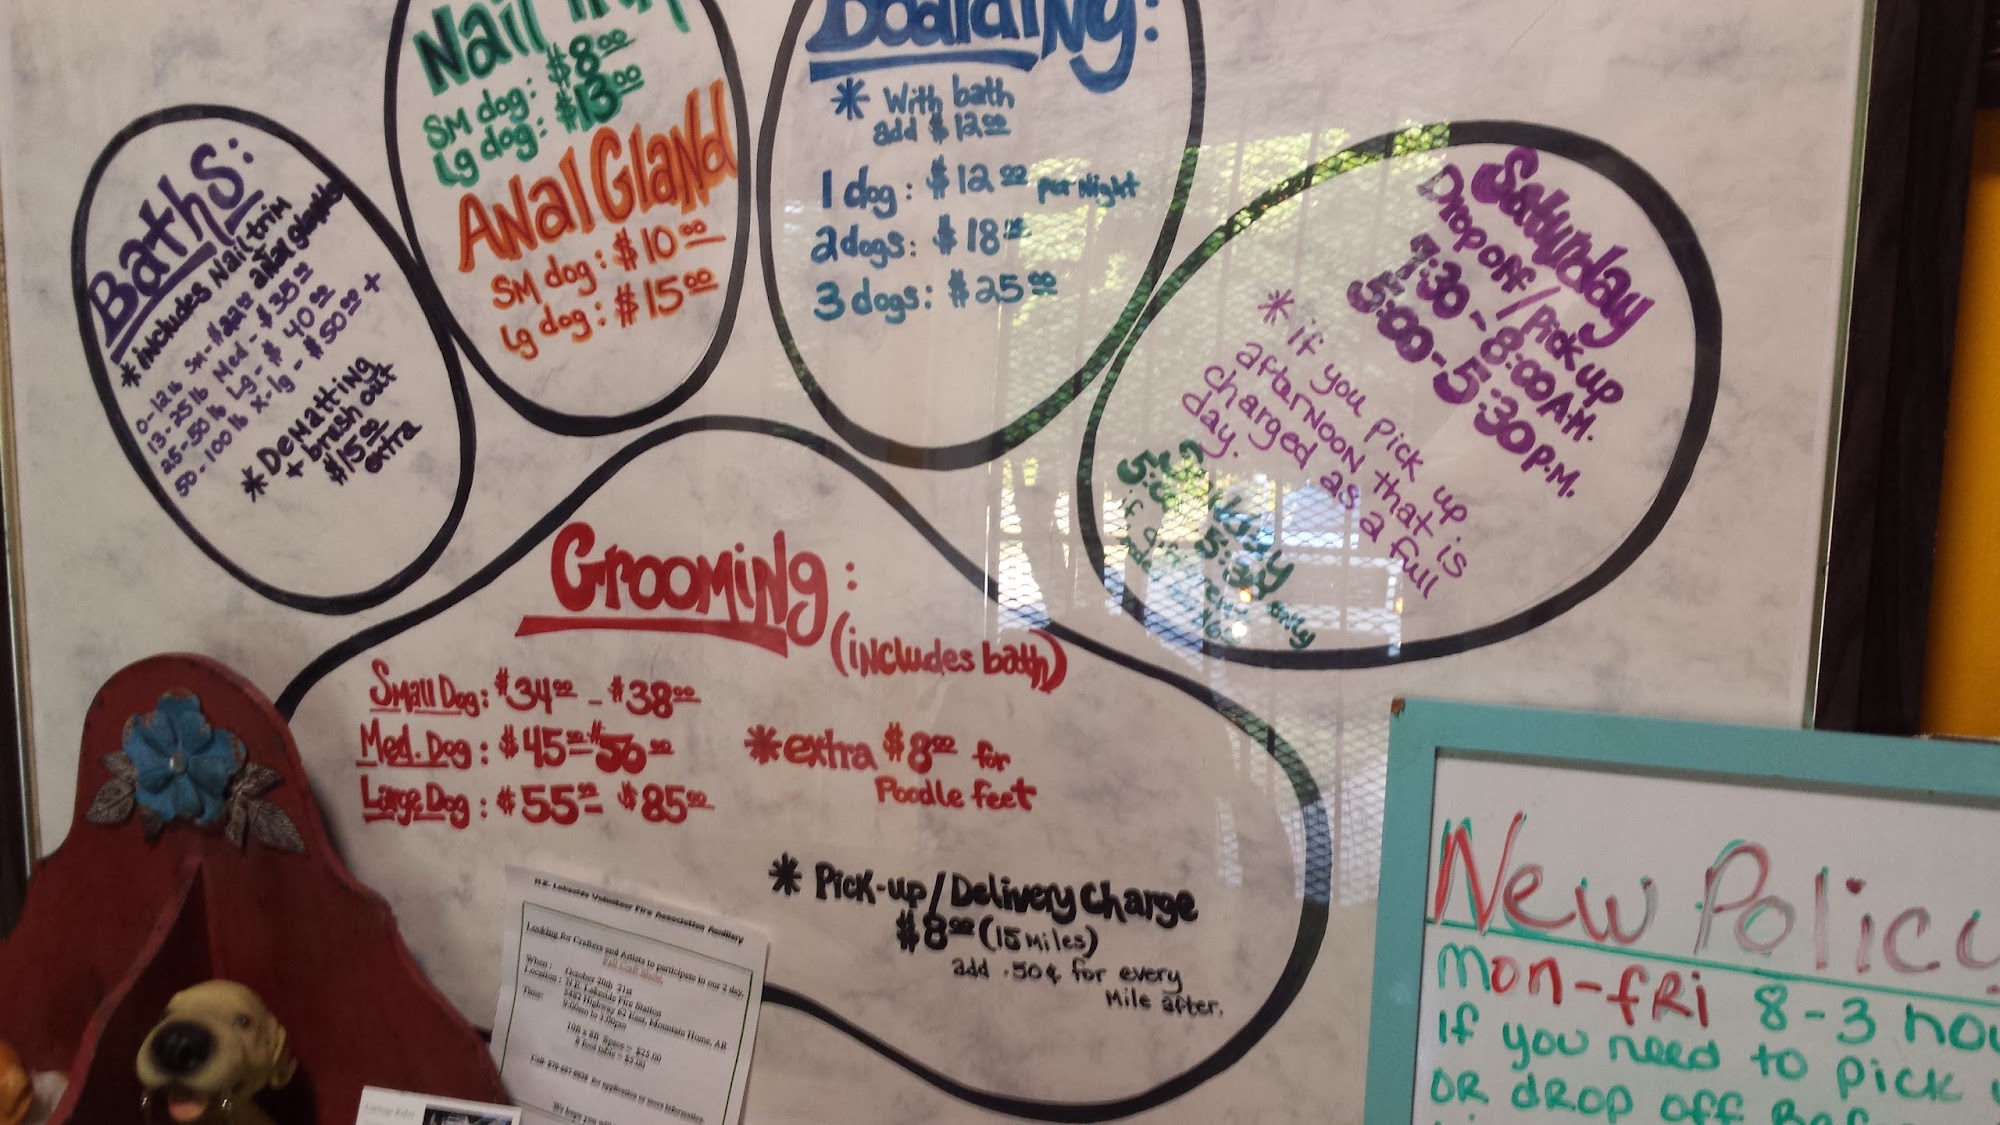 Baths:
*includes Nail trim
anal glands
0-12 lb SM - $22.00
13-25 lb Med - $35.00
25-50 lb Lg - $40.00
50-100 lb X-lg - $50.00 +
*Dematting
+ brush out
$15.00
extra
Nail
SM dog: $8.00
Lg dog: $13.00
Anal Gland
SM dog: $10.00
Lg dog: $15.00
Boarding:
* With bath
add $12.00
1 dog: $12.00 per Night
2 dogs: $18.00
3 dogs: $25.00
Saturday
Drop off/Pick up
7:30 - 8:00 A.M.
5:00 - 5:30 P.M.
* if you pick up
afternoon that is
charged as a full
day.
Grooming:
(includes bath)
Small Dog: $34.00 - $38.00
Med. Dog: $45.00 $56.00
Large Dog: $55.00 $85.00
*extra $8.00 for
Poodle feet
* Pick-up/Delivery Charge
$8.00 (15 Miles)
add .50¢ for every
Mile after.
N.E. Lakeside Volunteer Fire Association Auxiliary
Looking for Crafters and Artists to participate in our 2 day,
Fall Craft Show.
When: October 20th 21st
Location: N.E. Lakeside Fire Station
5482 Highway 62 East, Mountain Home, AR
Time: 9:00am to 3:00pm
10ft x 8ft Space = $25.00
8 foot table = $5.00
for application or more information.
We hope you
New Policy
Mon-Fri 8-3
If you need to pick
or drop off